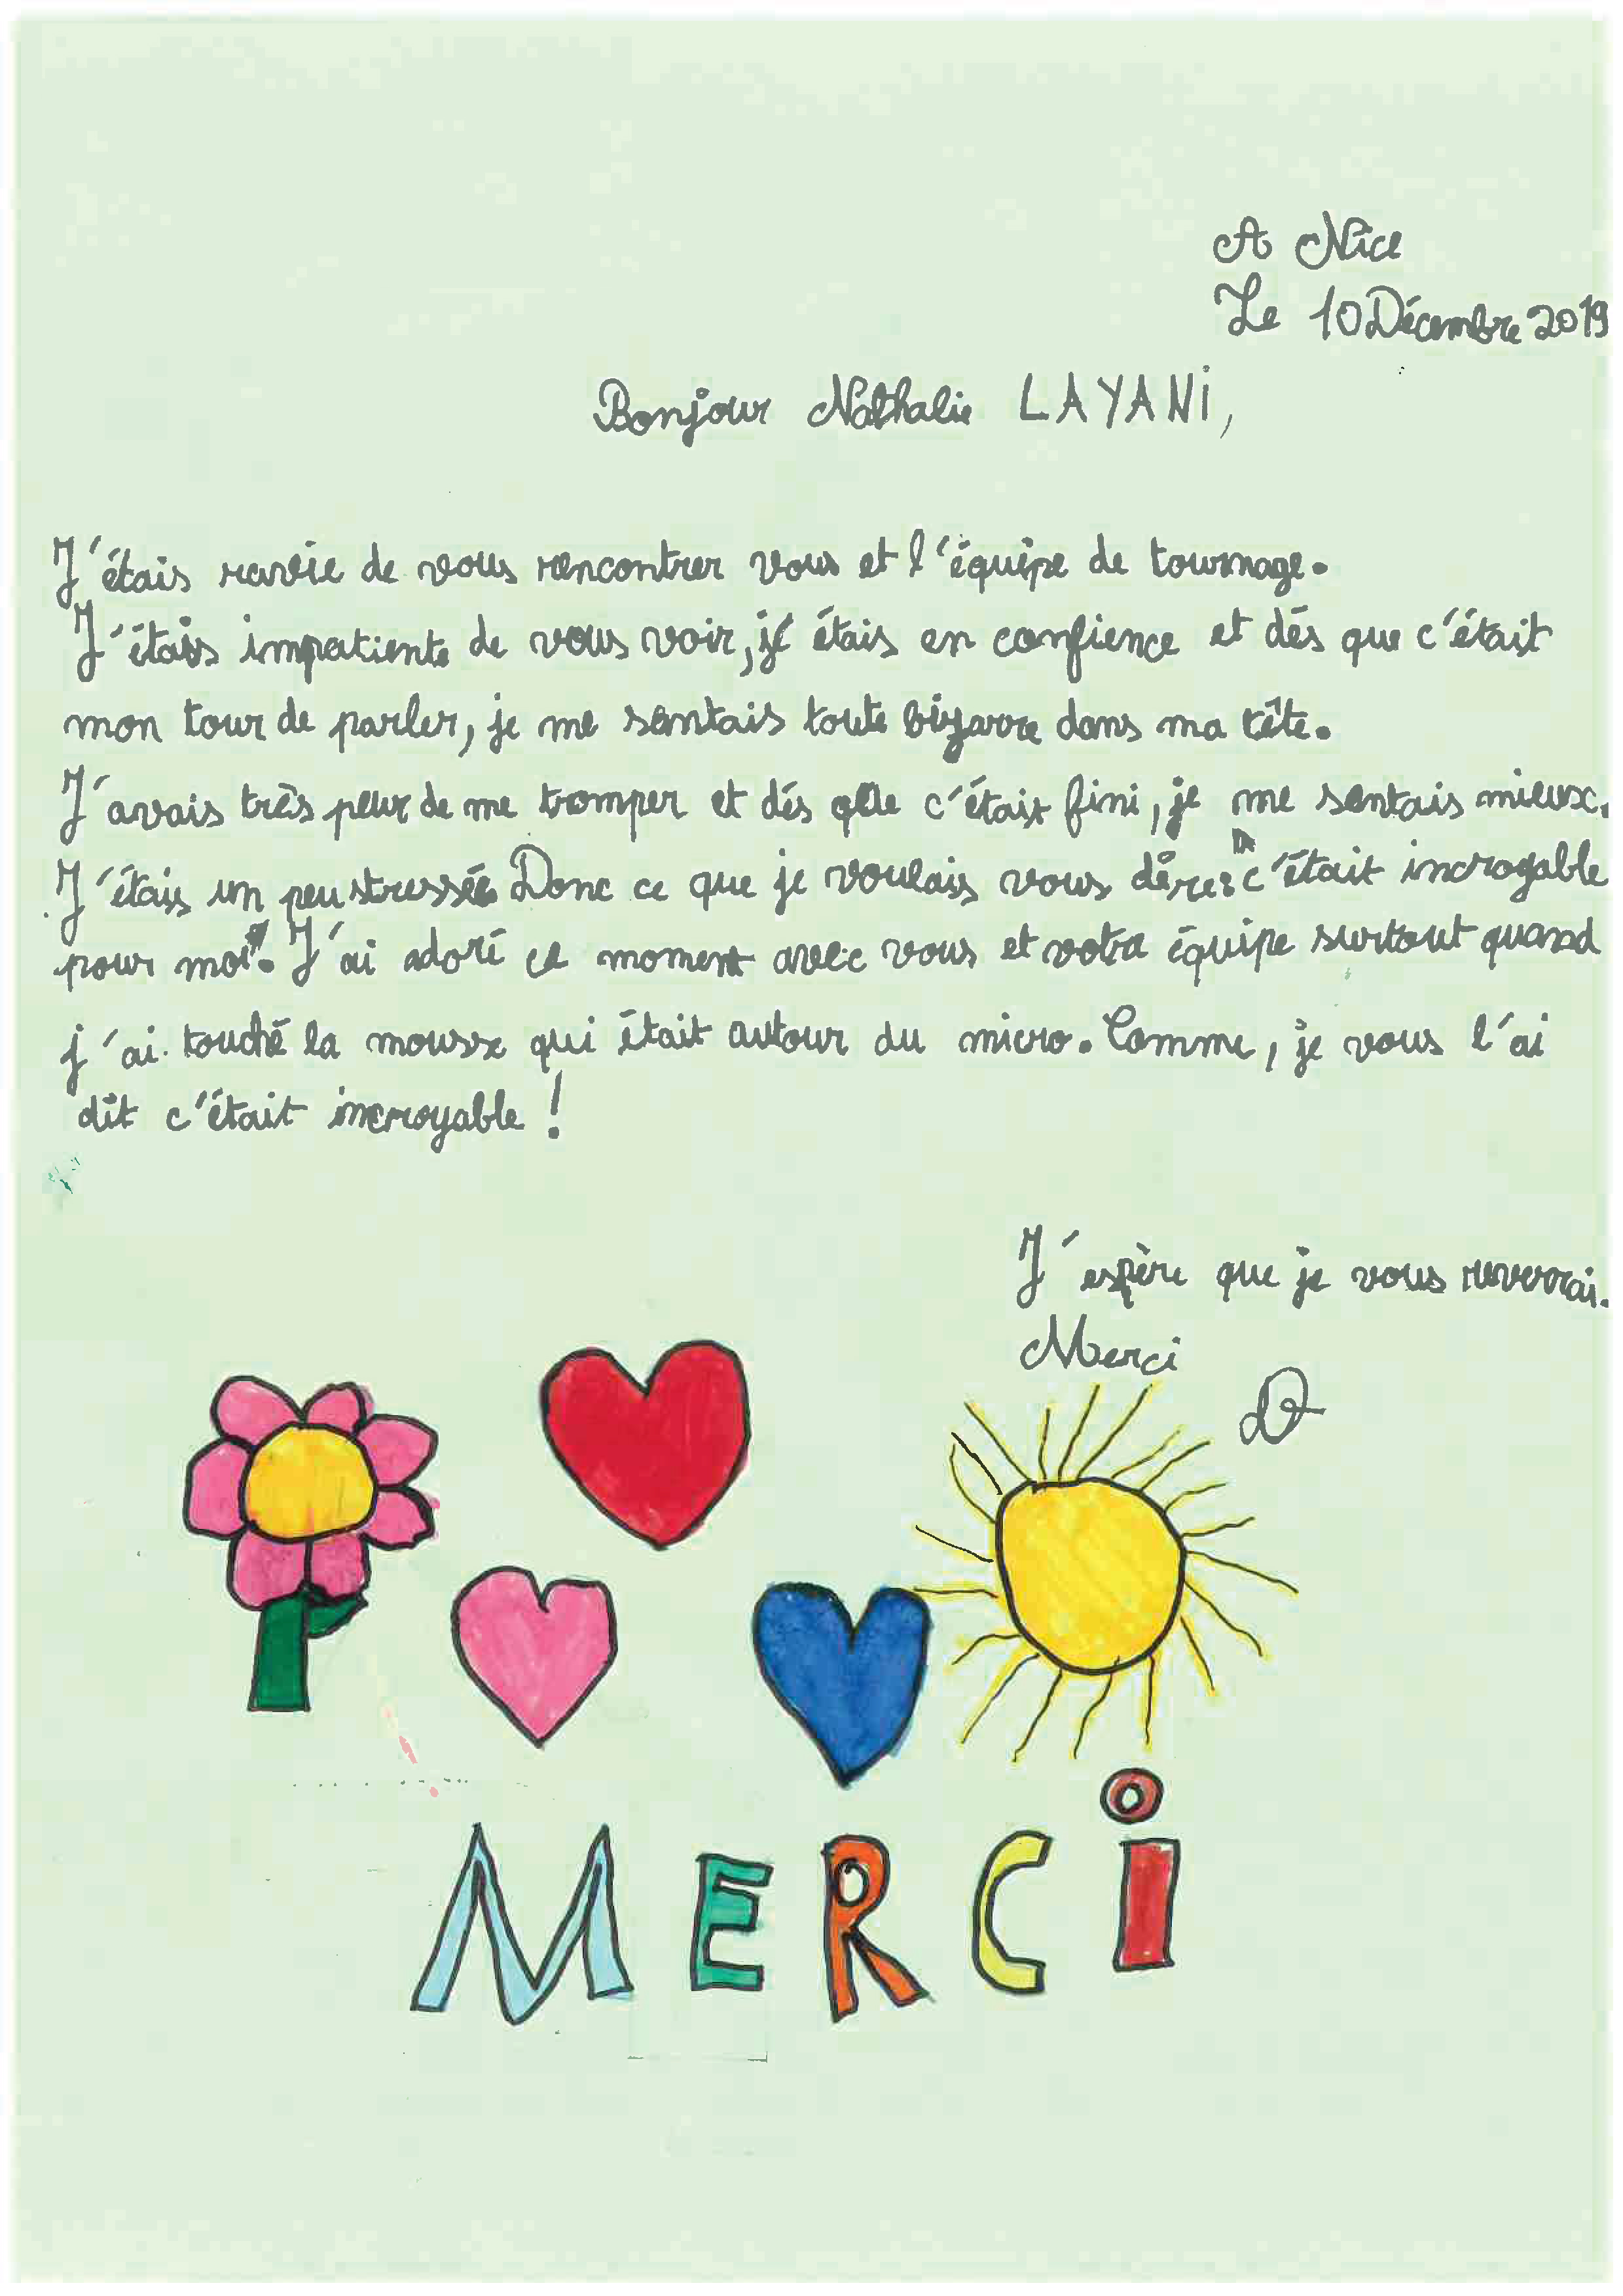 A Nice
Le 10 Décembre 2019
Bonjour Nathalie LAYANI,
J'étais ravie de vous rencontrer vous et l'équipe de tournage.
J'étais impatiente de vous voir, j' étais en confience et dés que c'était
mon tour de parler, je me sentais toute bizarre dans ma tête.
J'avais très peur de me tromper et dés que c'était fini, je me sentais mieux.
J'étais un peu stressée Donc ce que je voulais vous dire: c'était incroyable
pour moi. J'ai adoré ce moment avec vous et votre équipe surtout quand
j'ai touché la mousse qui était autour du micro. Comme, je vous l'ai
dit c'était incroyable !
J'espère que je vous reverrai.
Merci
MERCi